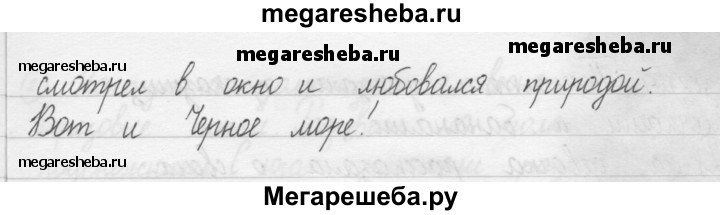 megaresheba.ru
megaresheba.ru megaresheba.ru
megaresheba.ru
смотрел в окно и любовался природой.
Вот и Черное море!
megaresheba.ru
Мегарешеба.ру